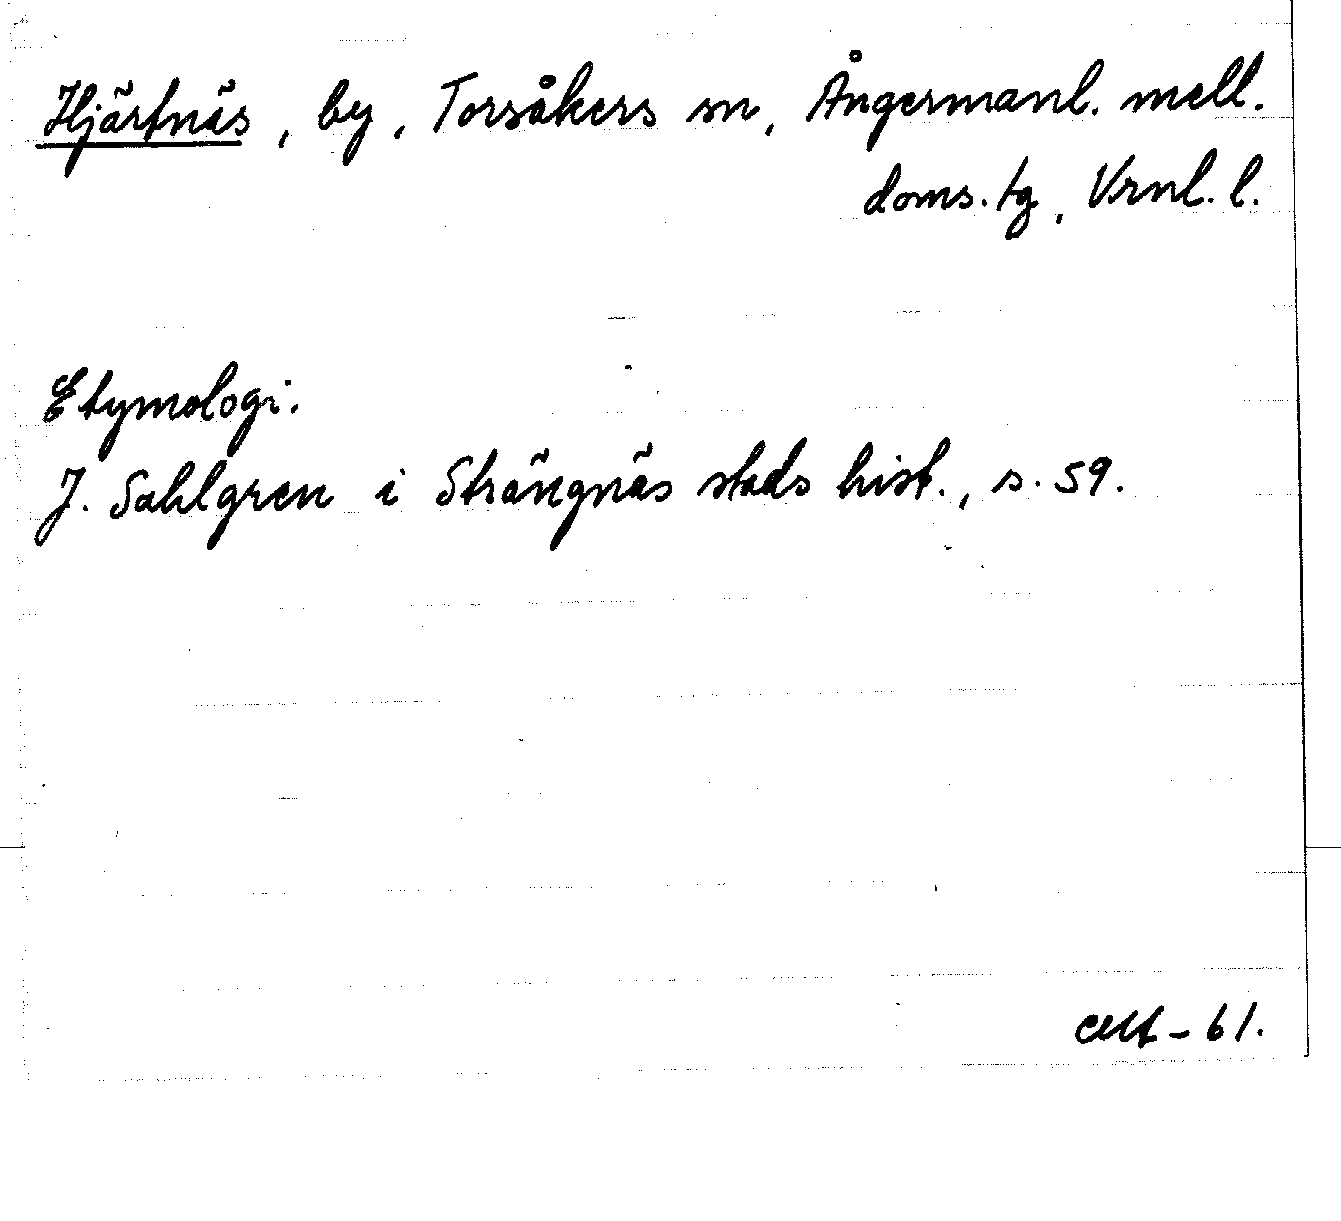 Hjärtnäs, by, Torsåkers sn, Ångermanl. mell.
doms.tg, Vrnl. l.
Etymologi.
J. Sahlgren i Strängnäs stads hist., s. 59.
- 61.